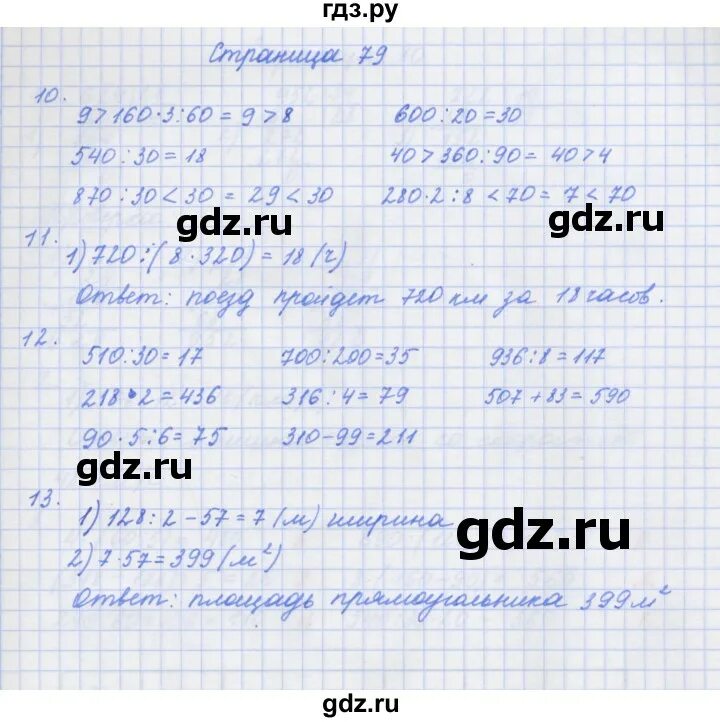 гдз.ру
Страница 79
10.
9>160·3:60=9>8 600:20=30
540:30=18 40>360:90=40>4
870:30<30=29<30 280·2:8<70=7<70
gdz.ru gdz.ru
11.
1) 720:(8·320)=18 (ч)
Ответ: поезд пройдет 720 км за 18 часов.
12.
510:30=17 700:200=35 936:8=117
218·2=436 316:4=79 507+83=590
90·5:6=75 310-99=211
gdz.ru
13.
1) 128:2-57=7 (м) ширина
gdz.ru
2) 7·57=399 (м²)
Ответ: площадь прямоугольника 399 м²
gdz.ru